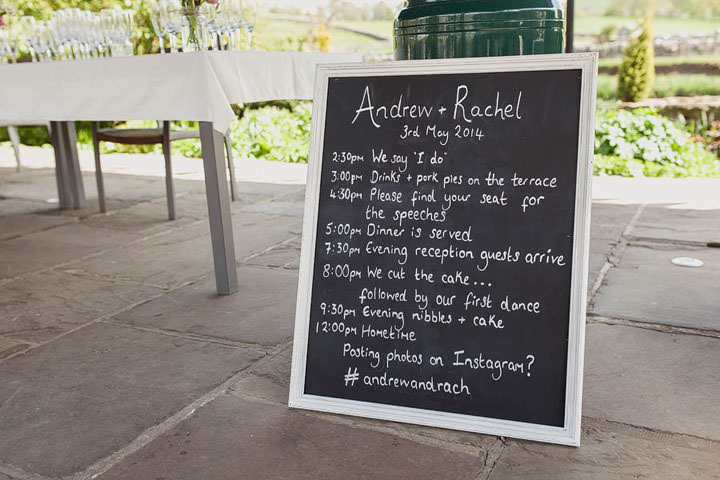 Andrew + Rachel
3rd May 2014
2:30pm We say "I do"
3:00pm Drinks + pork pies on the terrace
4:30pm Please find your seat for
the speeches
5:00pm Dinner is served
7:30pm Evening reception guests arrive
8:00pm We cut the cake...
followed by our first dance
9:30pm Evening nibbles + cake
12:00pm Hometime
Posting photos on Instagram?
# andrewandrach